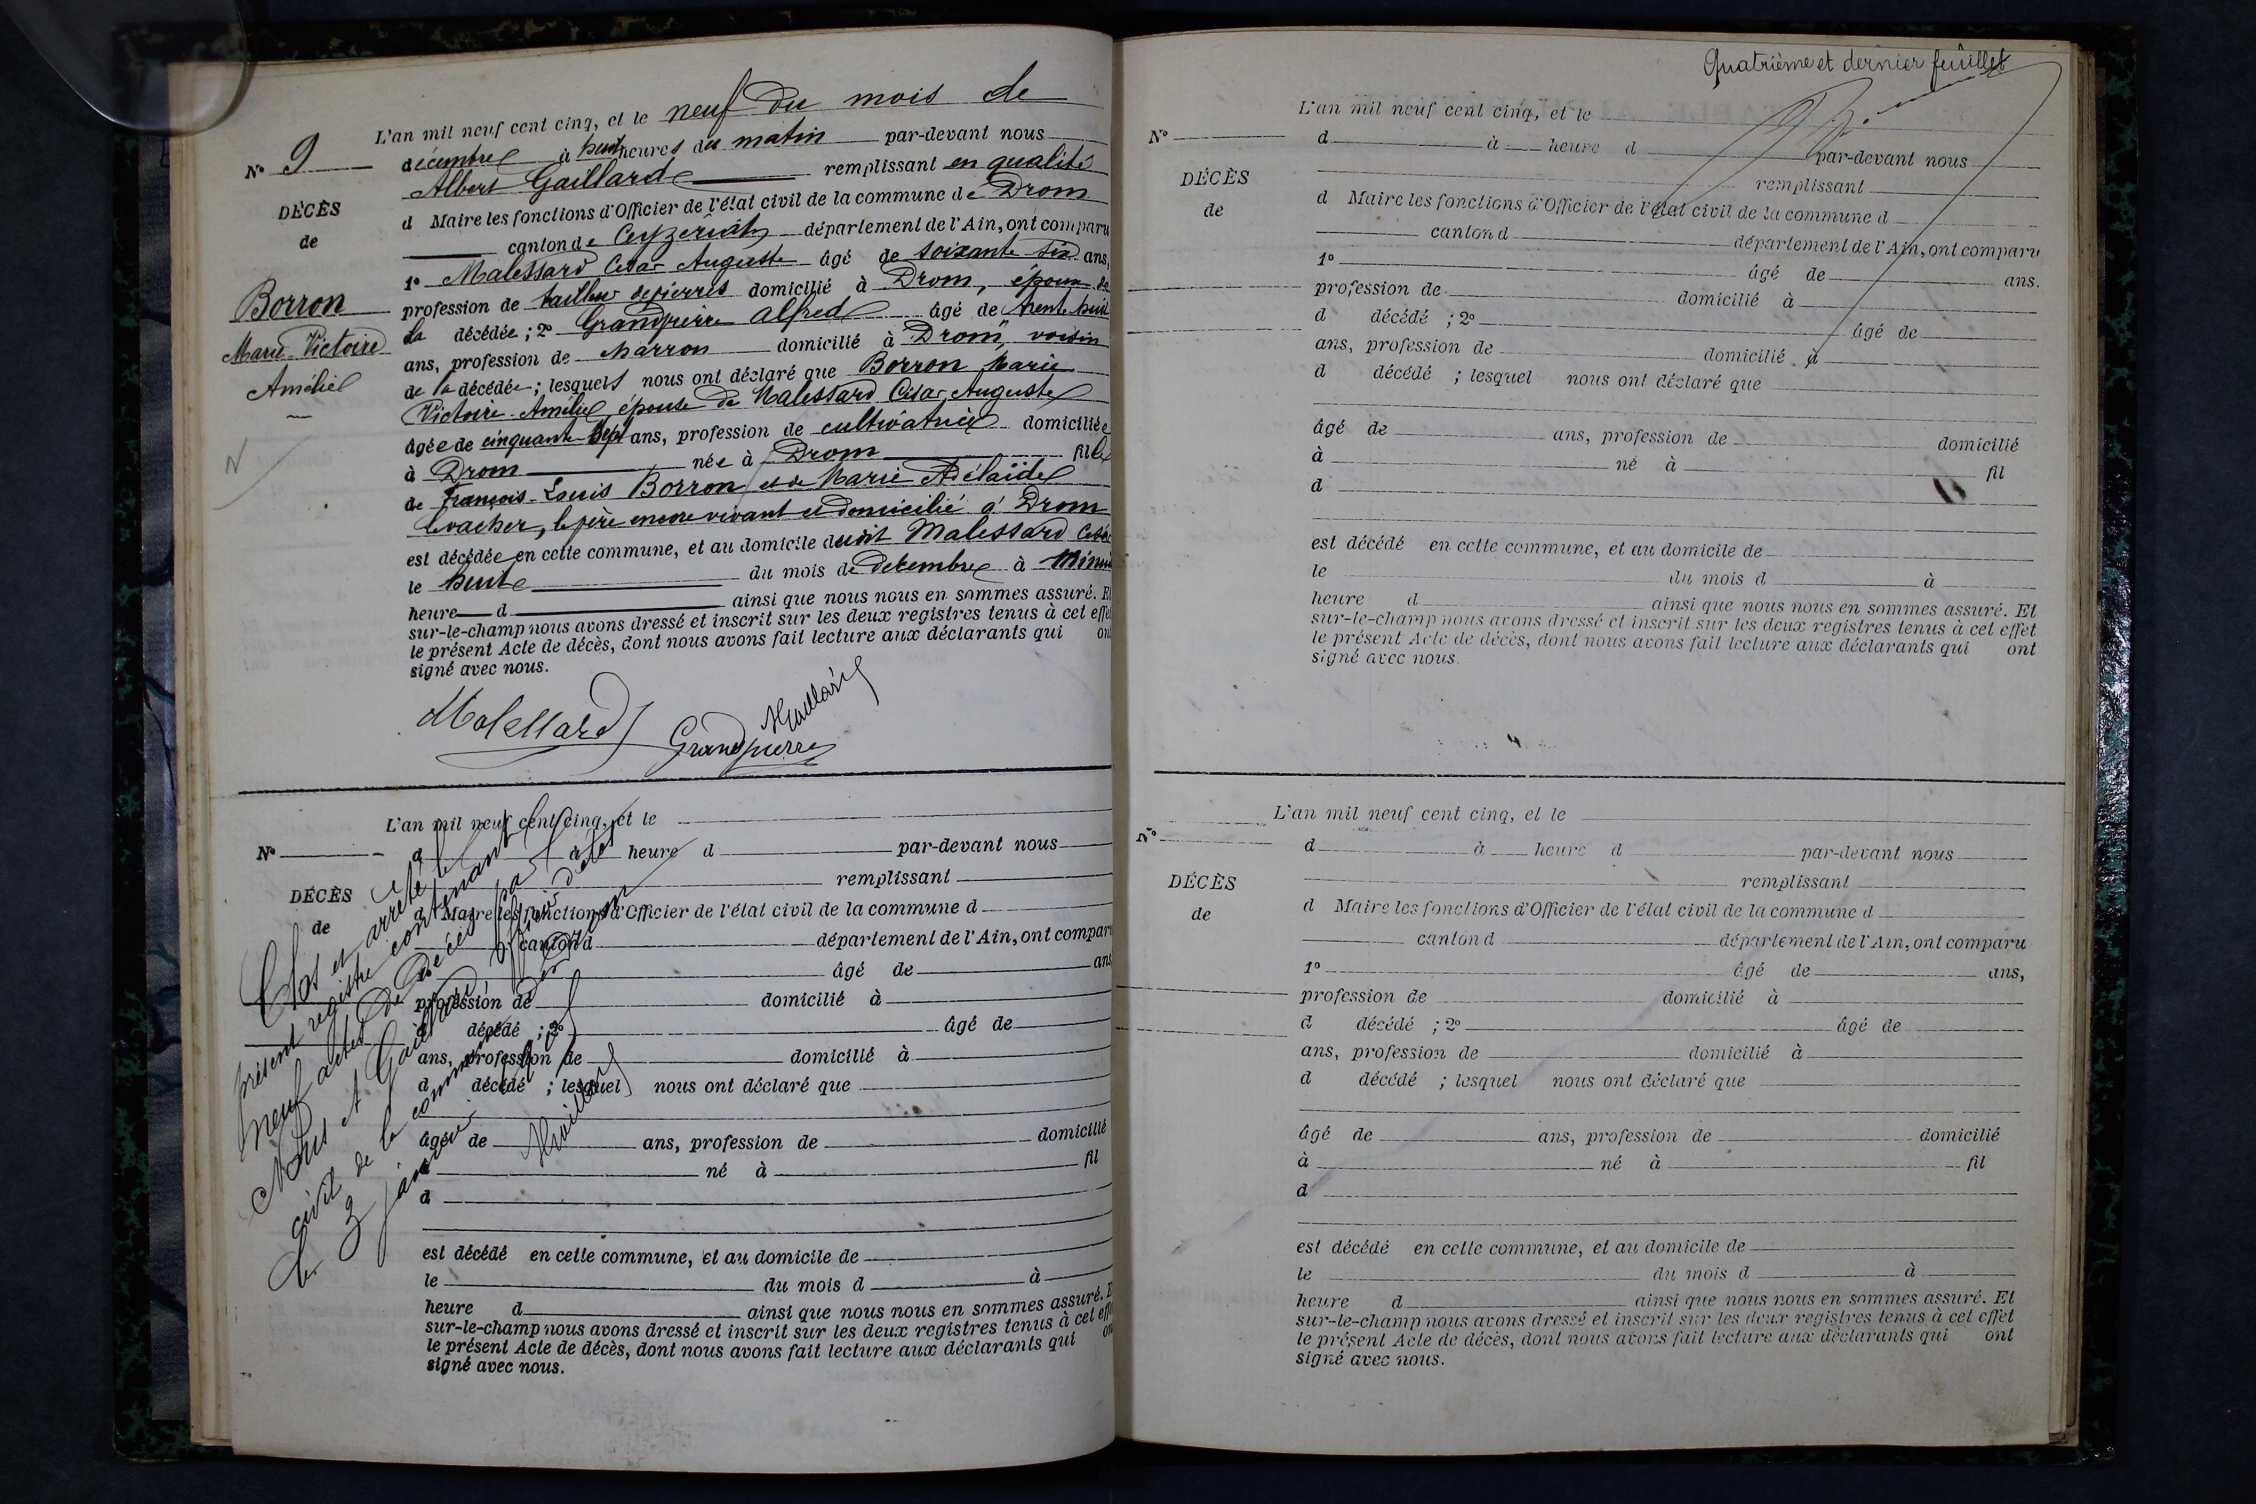 L'an mil neuf cent cinq, et le neuf du mois de
N° 9
décembre à huit heures du matin par-devant nous
Albert Gaillard remplissant en qualité
DÉCÈS
d Maire les fonctions d'Officier de l'état civil de la commune de Drom
de
canton de Ceyzériat département de l'Ain, ont comparu
1° Malessard César Auguste âgé de soixante six ans,
Borron
profession de tailleur de pierres domicilié à Drom, époux de
Marie Victoire
la décédée ; 2° Grandpierre Alfred âgé de trente huit
Amélie
ans, profession de charron domicilié à Drom, voisin
de la décédée ; lesquels nous ont déclaré que Borron Marie
Victoire Amélie, épouse de Malessard César Auguste
âgée de cinquante sept ans, profession de cultivatrice domiciliée
N
à Drom née à Drom fille
de François-Louis Borron et de Marie Adélaïde
Convert, le père encore vivant et domicilié à Drom
est décédée en cette commune, et au domicile dudit Malessard César
le huit du mois de décembre à minuit
heure d ainsi que nous nous en sommes assuré. Et
sur-le-champ nous avons dressé et inscrit sur les deux registres tenus à cet effet
le présent Acte de décès, dont nous avons fait lecture aux déclarants qui ont
signé avec nous.
Malessard
Grandpierre
AGaillard
L'an mil neuf cent cinq, et le
N°
d à heure d par-devant nous
remplissant
DÉCÈS
d Maire les fonctions d'Officier de l'état civil de la commune d
de
canton d département de l'Ain, ont comparu
âgé de ans
profession de domicilié à
d décédé ; 2° âgé de
ans, profession de domicilié à
d décédé ; lesquel nous ont déclaré que
âgé de ans, profession de domicilié
né à fil
d
est décédé en cette commune, et au domicile de
le du mois d à
heure d ainsi que nous nous en sommes assuré. E
sur-le-champ nous avons dressé et inscrit sur les deux registres tenus à cet effe
le présent Acte de décès, dont nous avons fait lecture aux déclarants qui on
signé avec nous.
Clos et arrêté le
présent registre contenant
neuf actes de décès par
Nous A Gaillard officier de l'état
civil de la commune de Drom
le 3 janvier
AGaillard
Quatrième et dernier feuillet
L'an mil neuf cent cinq, et le
N°
d à heure d par-devant nous
remplissant
DÉCÈS
d Maire les fonctions d'Officier de l'état civil de la commune d
de
canton d département de l'Ain, ont comparu
1° âgé de ans.
profession de domicilié à
d décédé ; 2° âgé de
ans, profession de domicilié à
d décédé ; lesquel nous ont déclaré que
âgé de ans, profession de domicilié
à né à fil
d
est décédé en cette commune, et au domicile de
le du mois d à
heure d ainsi que nous nous en sommes assuré. Et
sur-le-champ nous avons dressé et inscrit sur les deux registres tenus à cet effet
le présent Acte de décès, dont nous avons fait lecture aux déclarants qui ont
signé avec nous.
L'an mil neuf cent cinq, et le
N°
d à heure d par-devant nous
remplissant
DÉCÈS
d Maire les fonctions d'Officier de l'état civil de la commune d
de
canton d département de l'Ain, ont comparu
1° âgé de ans,
profession de domicilié à
d décédé ; 2° âgé de
ans, profession de domicilié à
d décédé ; lesquel nous ont déclaré que
âgé de ans, profession de domicilié
à né à fil
d
est décédé en cette commune, et au domicile de
le du mois d à
heure d ainsi que nous nous en sommes assuré. Et
sur-le-champ nous avons dressé et inscrit sur les deux registres tenus à cet effet
le présent Acte de décès, dont nous avons fait lecture aux déclarants qui ont
signé avec nous.